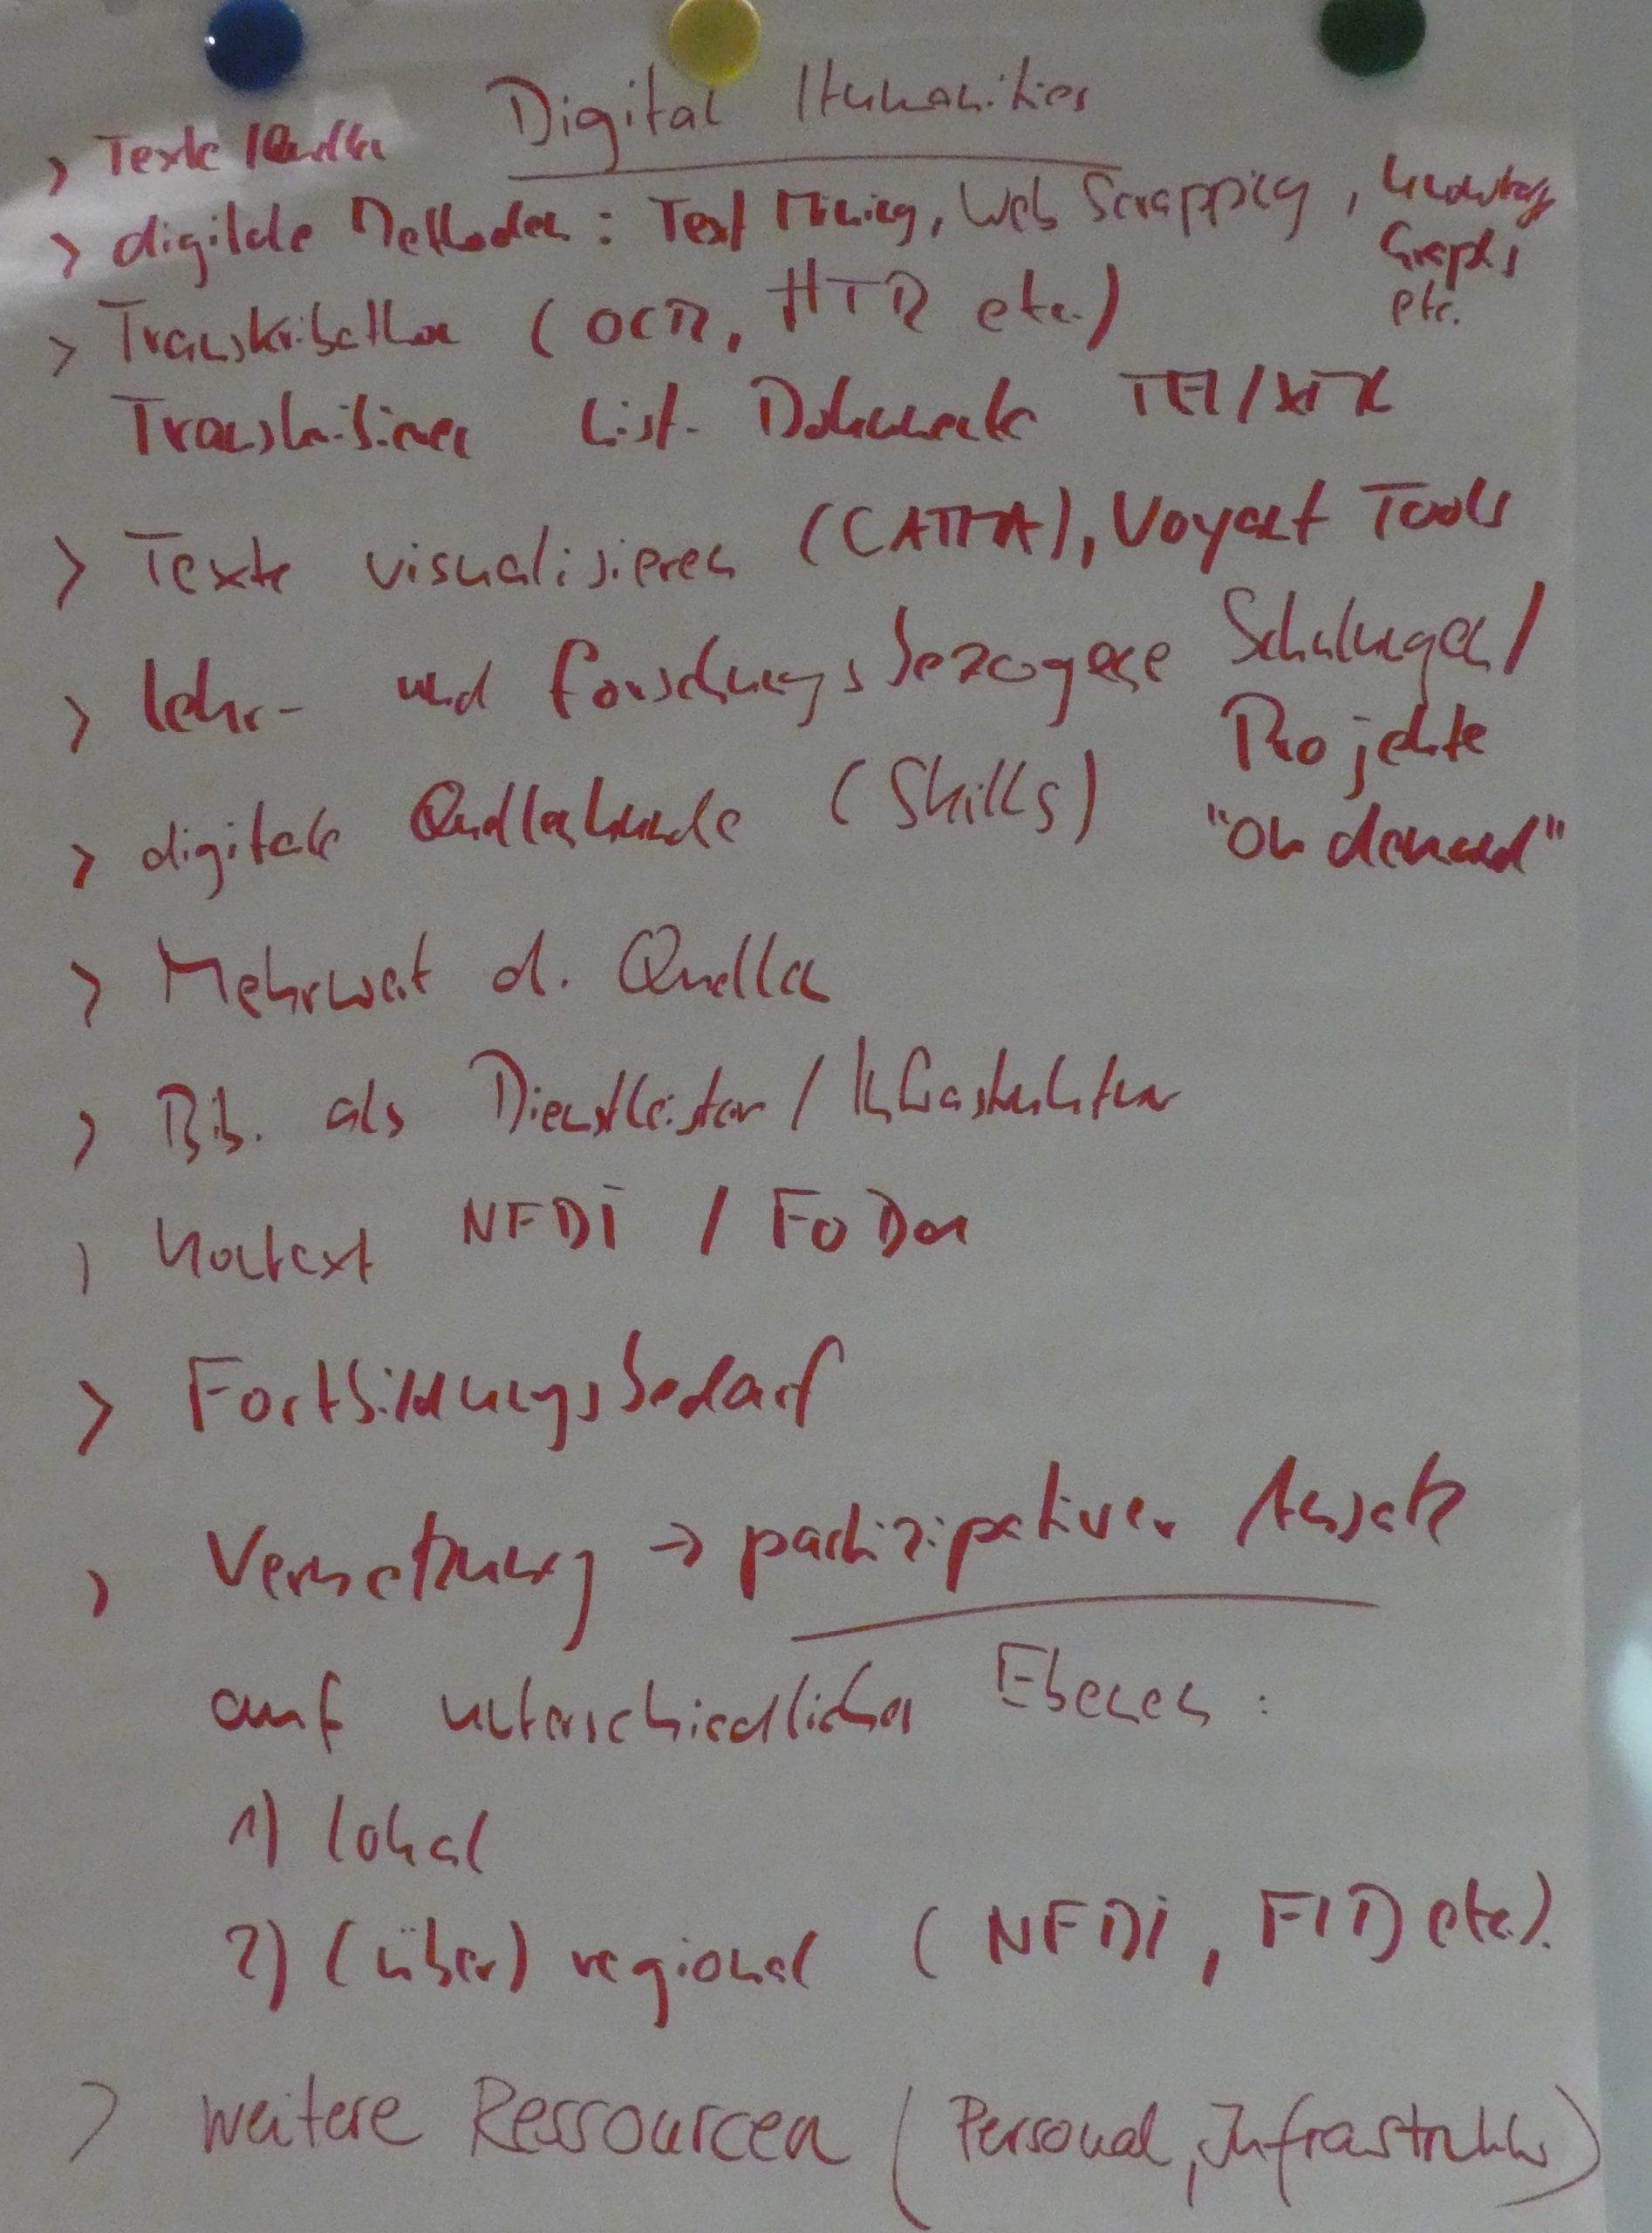 Digital Humanities
> Texte / Quellen
> digitale Methoden : Text Mining, Web Scrapping, Knowledge
Graphs
etc.
> Transkribathon (OCR, HTR etc.)
Transkribieren hist. Dokumente TEI/XML
> Texte visualisieren (CATMA), Voyant Tools
> lehr- und forschungsbezogene Schulungen/
Projekte
"on demand"
> digitale Quellenkunde (Skills)
> Mehrwert d. Quellen
> Bib. als Dienstleister / Infrastruktur
> Kontext NFDI / FODA
> Fortbildungsbedarf
> Vernetzung → partizipativer Ansatz
auf unterschiedlichen Ebenen :
1) lokal
2) (über) regional (NFDI, FID etc.).
> weitere Ressourcen (Personal, Infrastruktur)